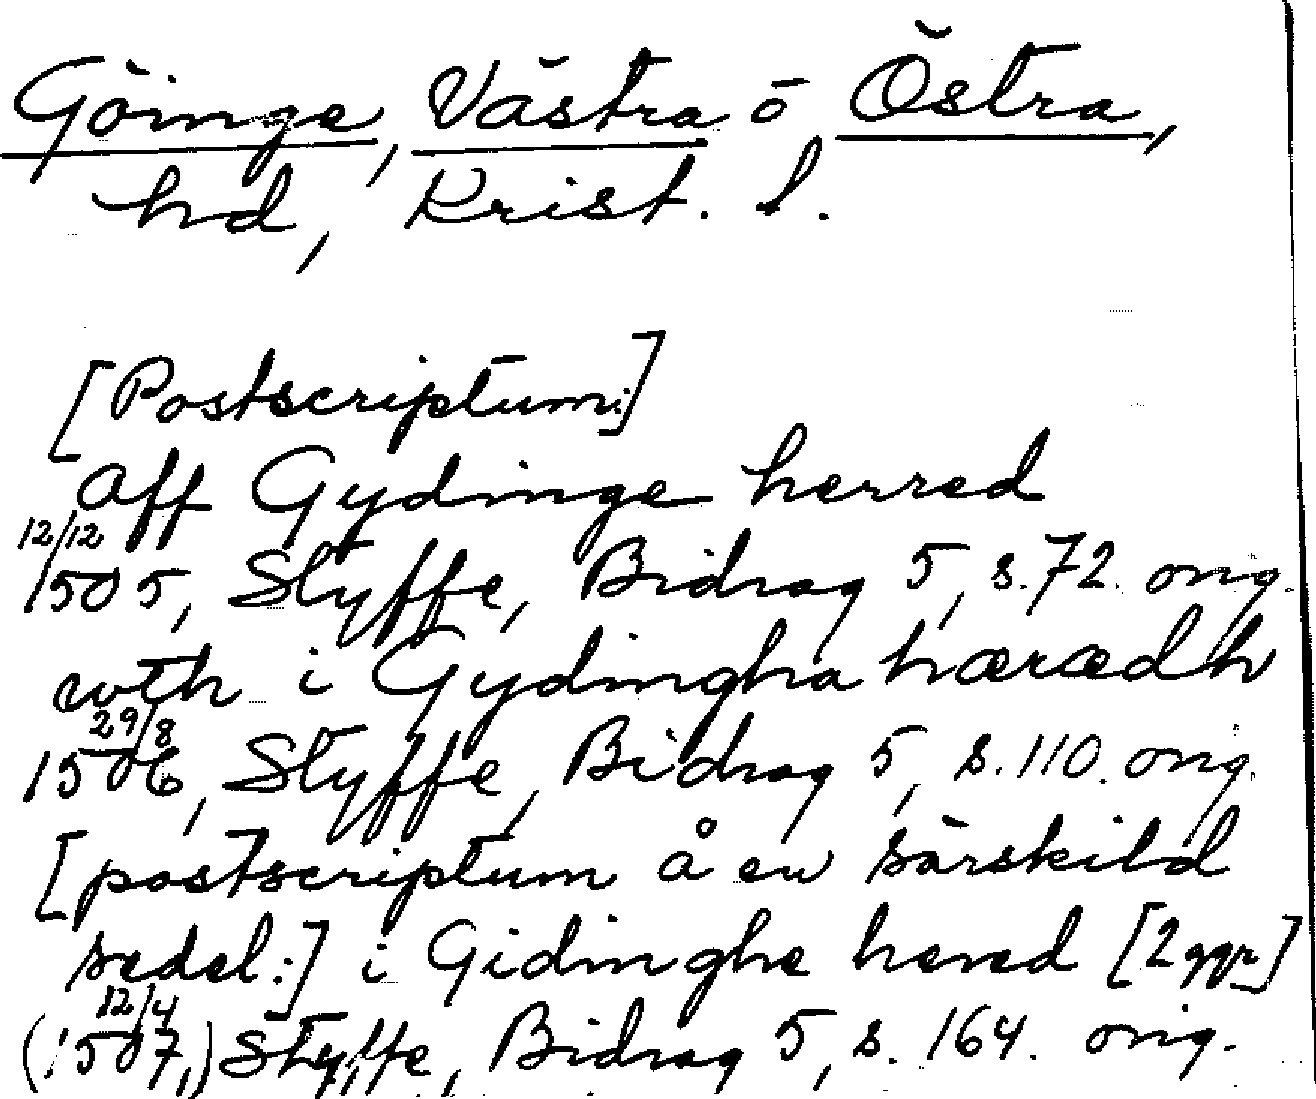 Göinge, Västra o Östra,
hd, Krist. l.
[Postscriptum:]
Aff Gydinge herred
12/12
1505, Styffe, Bidrag 5, s. 72. orig.
wth i Gydingha hæræd h
29/8
1506, Styffe, Bidrag 5, s. 110. orig.
[postscriptum å en särskild
sedel:] i Gidinghe hered [2 ggr]
12/4
(1507,) Styffe, Bidrag 5, s. 164. orig.